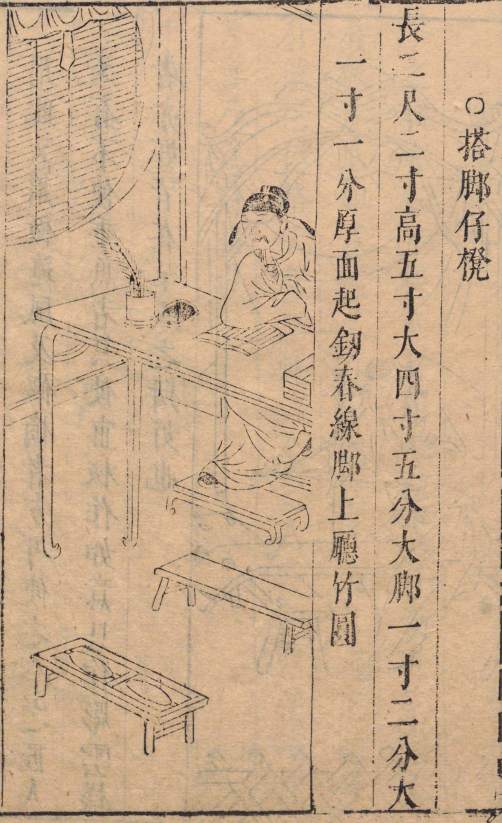 ○搭脚仔櫈
長二尺二寸高五寸大四寸五分大脚一寸二分大
一寸一分厚面起釼春線脚上廳竹圓